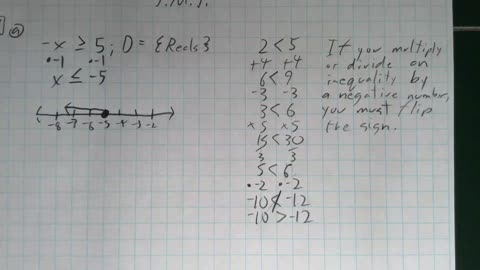 a
-x ≥ 5; D = {Reals}
·-1 ·-1
x ≤ -5
-8 -7 -6 -5 -4 -3 -2
2 < 5
+4 +4
6 < 9
-3 -3
3 < 6
×5 ×5
15 < 30
3 3
5 < 6
·-2 ·-2
-10 < -12
-10 > -12
If you multiply
or divide an
inequality by
a negative number,
you must flip
the sign.